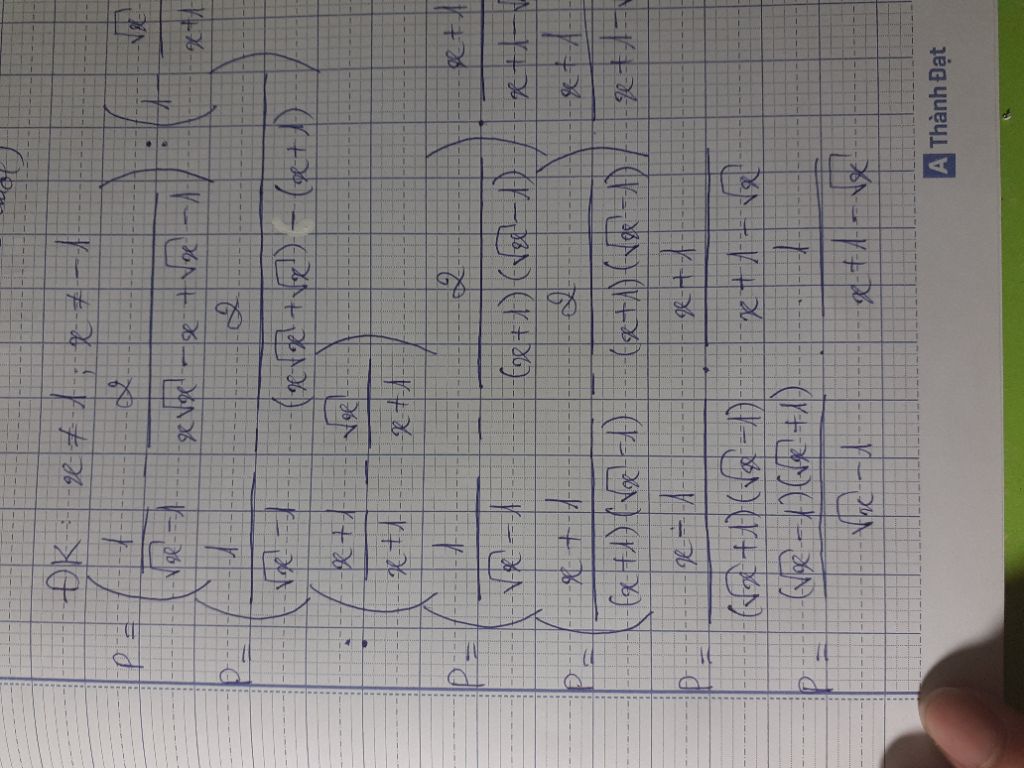 ĐK: x ≠ 1; x ≠ -1
P = (1/(√x - 1) - 2/(x√x - x + √x - 1)) : (1 - √x/(x+1))
P = (1/(√x - 1) - 2/((x√x + √x) - (x+1)))
: ((x+1)/(x+1) - √x/(x+1))
P = (1/(√x - 1) - 2/((x+1)(√x - 1))) · (x+1)/(x+1-√
P = ((x+1)/((x+1)(√x - 1)) - 2/((x+1)(√x - 1))) (x+1)/(x+1-√
P = (x-1)/((√x+1)(√x-1)) · (x+1)/(x+1-√x)
P = ((√x-1)(√x+1))/(√x-1) · 1/(x+1-√x)
A Thành Đạt